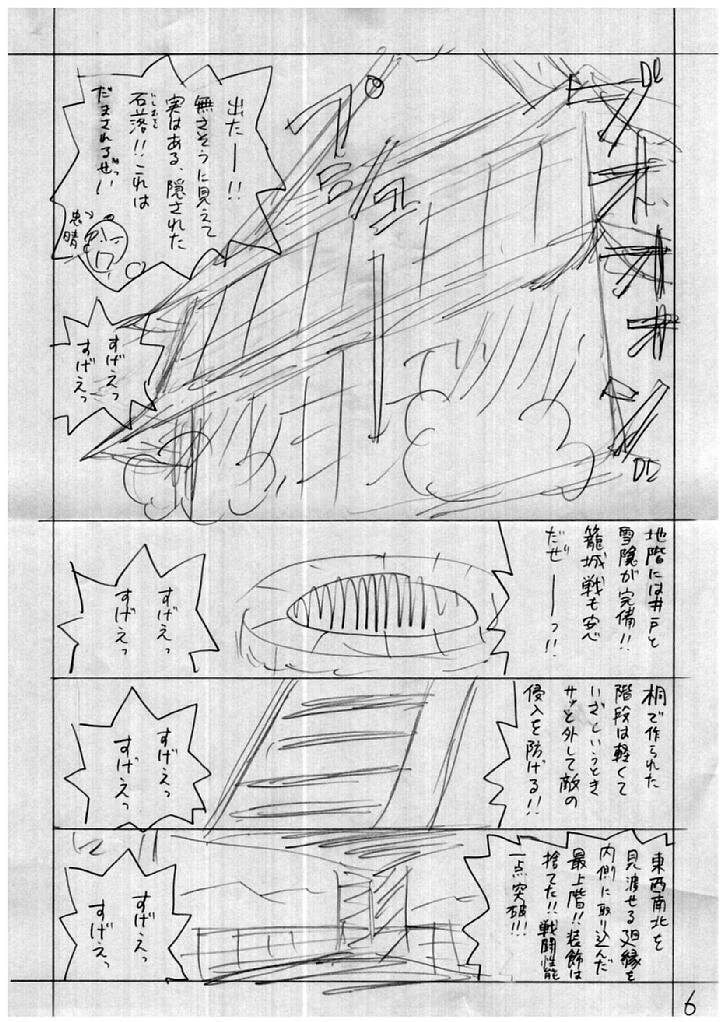 出たー!!
無さそうに見えて
実はある、隠された
石落!!これは
だまされるぜっ!!
忠晴
すげえっ
すげえっ
地階には井戸と
雪隠が完備!!
籠城戦も安心
だぜーっ!!
すげえっ
すげえっ
桐で作られた
階段は軽くて
いざというとき
サッと外して敵の
侵入を防げる!!
すげえっ
すげえっ
東西南北を
見渡せる廻縁を
内側に取り込んだ
最上階!!装飾は
捨てた!!戦闘性能
一点突破!!!
すげえっ
すげえっ
6